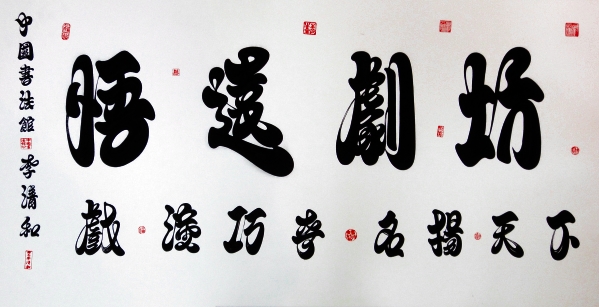 晤遠劇坊
戲演巧奇名揚天下
中國書法館 李清和